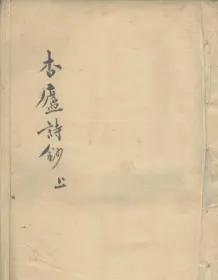 杏廬詩鈔 上